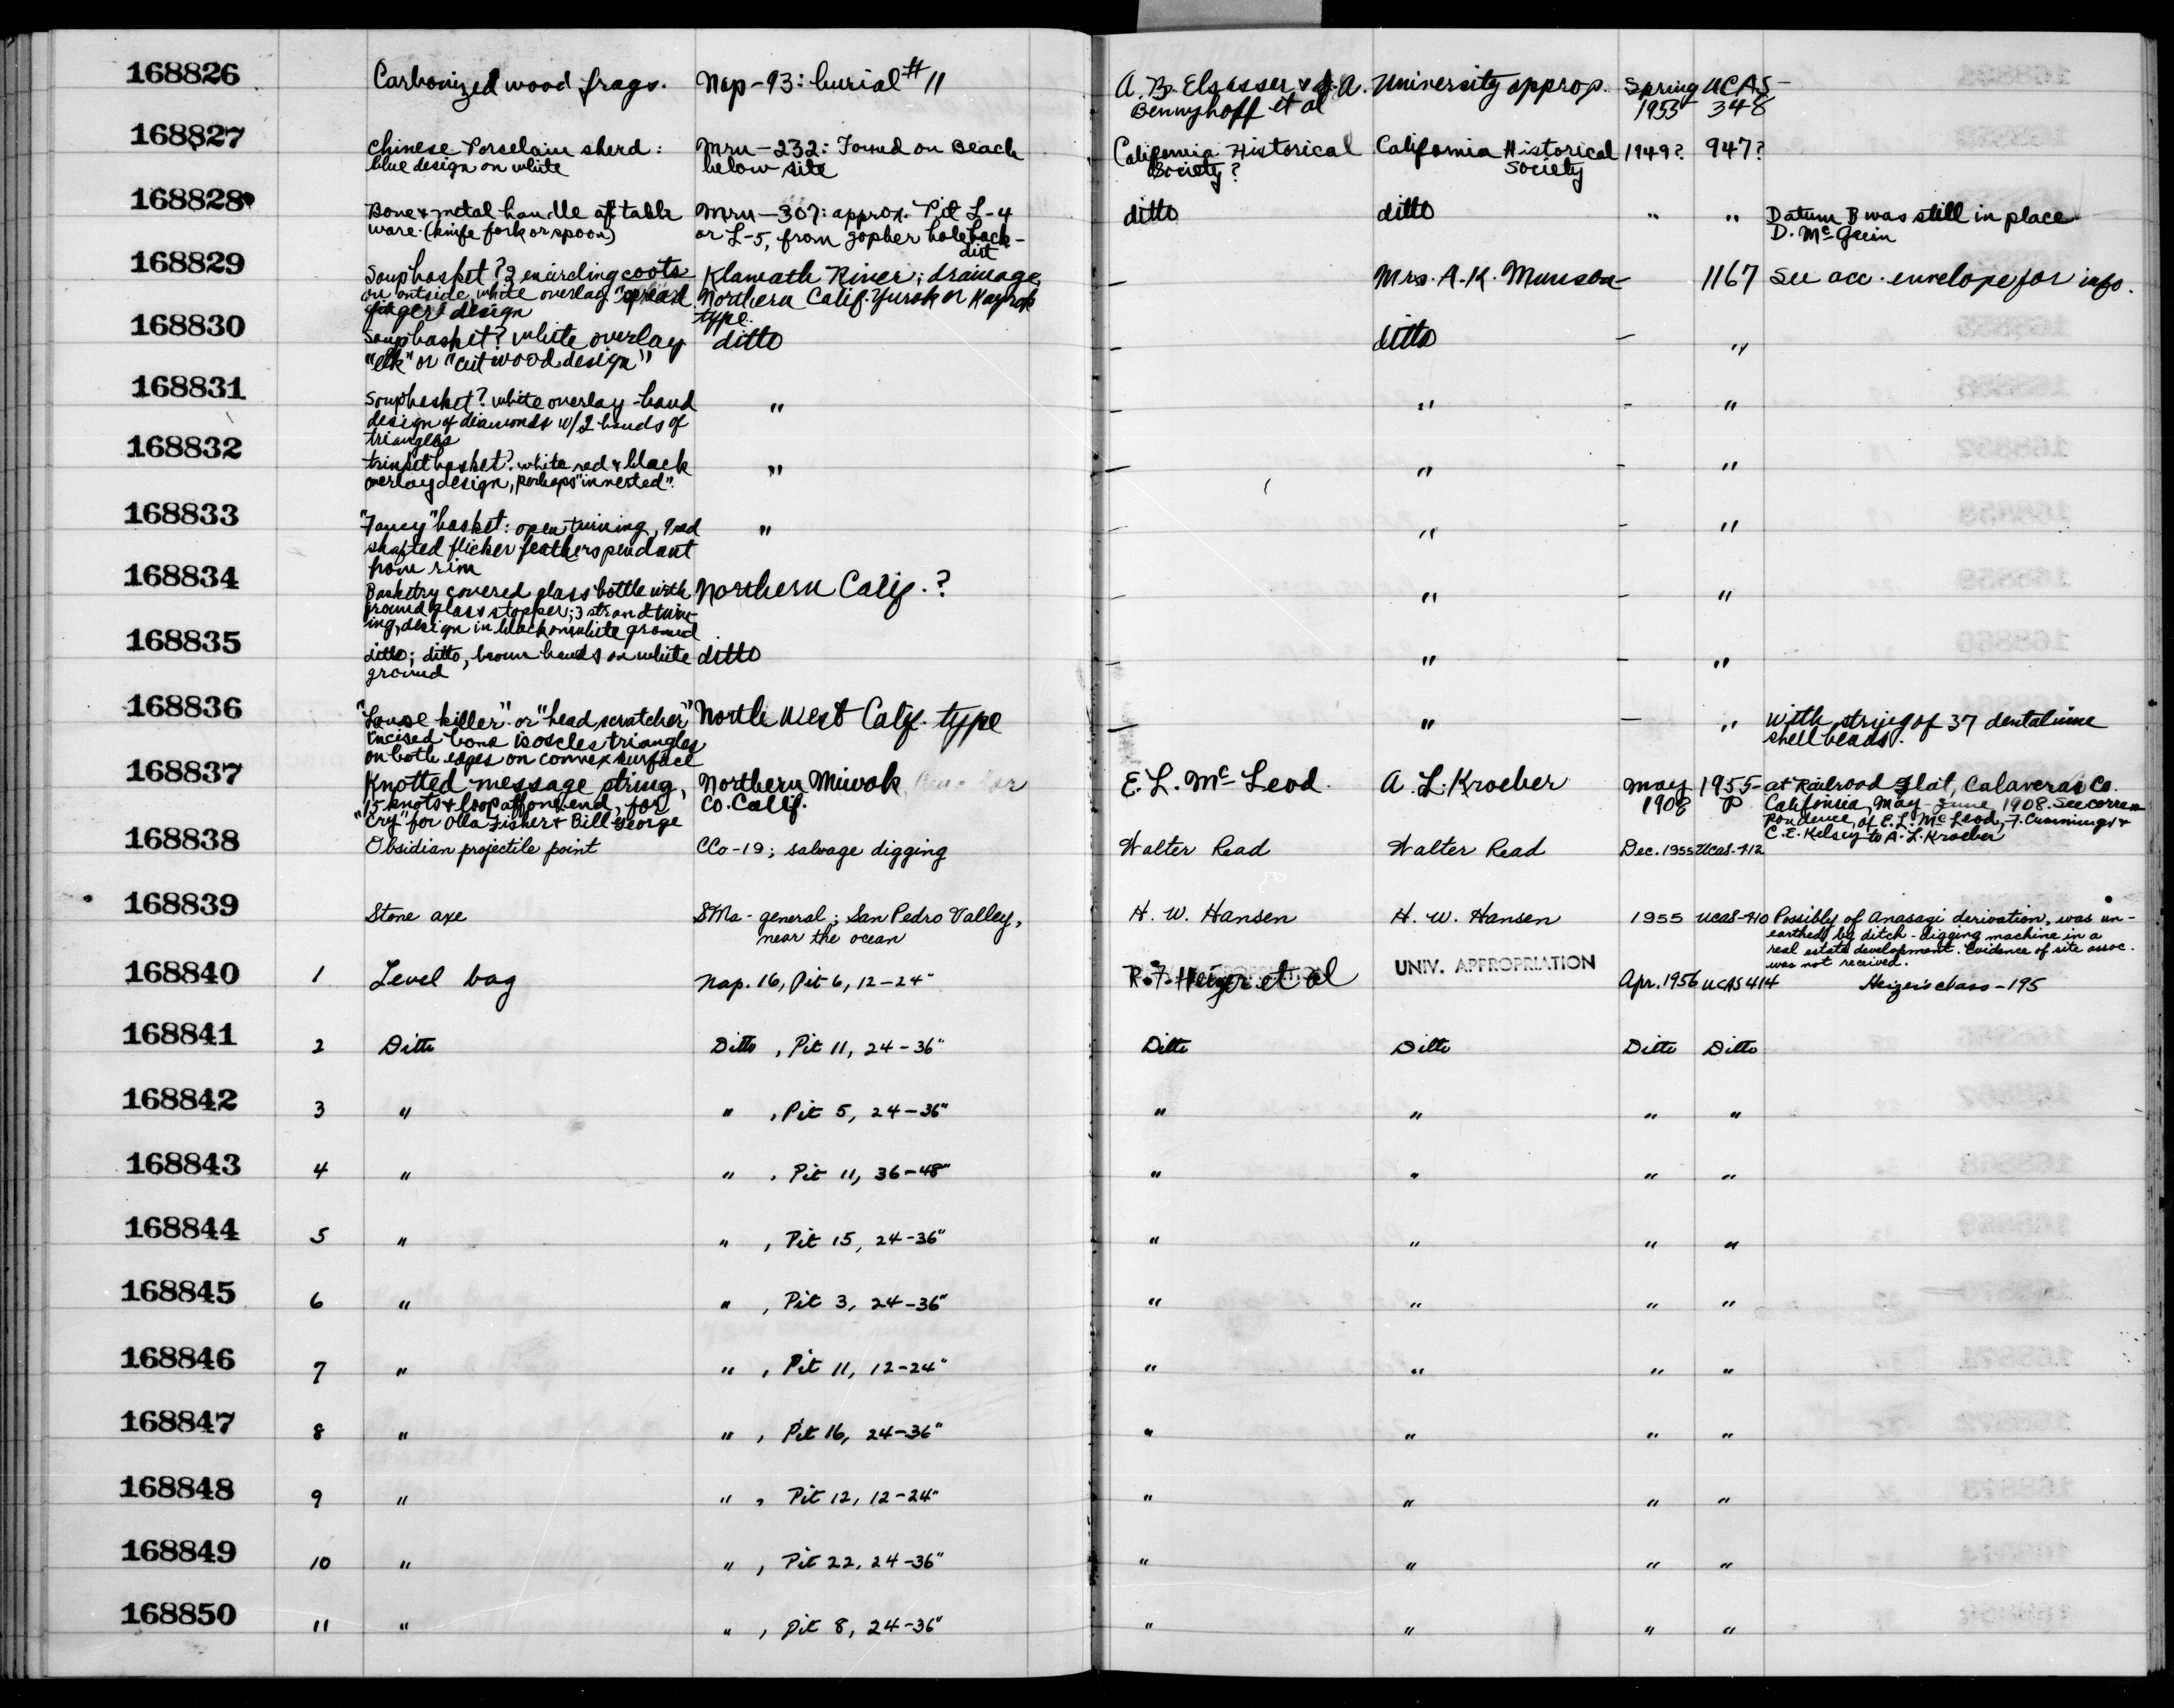 168826 Carbonized wood frags. Nap-93: burial #11 A. B. Elsasser & J. A. University approp. Spring UCAS-
Bennyhoff et al 1955 348
168827 Chinese Porcelain sherd: Mrn-232: Found on Beach California Historical California Historical 1949? 947?
blue design on white below site Society? Society
168828 Bone & metal handle of table Mrn-307: approx. Pit L-4 ditto ditto " " Datum B was still in place
ware. (knife fork or spoon) or L-5, from gopher hole back- D. McGuin
dirt
168829 Soup basket? 2 encircling coots Klamath River; drainage, — Mrs. A. K. Munson — 1167 See acc. envelope for info.
on outside, white overlay "spread Northern Calif. Yurok or Karok
finger" design type.
168830 Soup basket? white overlay ditto — ditto — "
"elk" or "cut wood design"
168831 Soup basket? white overlay - band " — " — "
design of diamonds w/2 bands of
triangles
168832 trinket basket? white red & black " — " — "
overlay design, perhaps "inverted".
168833 "Fancy" basket: open twining, 9 red " — " — "
shafted flicker feathers pendant
from rim
168834 Basketry covered glass bottle with Northern Calif.? — " — "
ground glass stopper; 3 strand twin-
ing, design in black on white ground
168835 ditto; ditto, brown bands on white ditto — " — "
ground
168836 "Louse killer" or "head scratcher" North West Calif. type — " — " with string of 37 dentalium
incised bone isosceles triangles shell beads.
on both edges on convex surface
168837 Knotted message string, Northern Miwok E. L. McLeod A. L. Kroeber May 1955- at Railroad Flat, Calaveras Co.
15 knots & loop at one end, for Co. Calif. 1908 P California, May-June 1908. See corres
"Cry" for Olla Fisher & Bill George pondence of E. L. McLeod, F. Cummings &
C. E. Kelsey to A. L. Kroeber
168838 Obsidian projectile point CCo-19; salvage digging Walter Read Walter Read Dec. 1955 UCAS-412
168839 Stone axe SMa-general; San Pedro Valley, H. W. Hansen H. W. Hansen 1955 UCAS-410 Possibly of Anasagi derivation, was un-
near the ocean earthed by ditch-digging machine in a
real estate development. Evidence of site assoc.
was not received.
168840 1 Level bag Nap. 16, Pit 6, 12-24" R. F. Heizer et al UNIV. APPROPRIATION Apr. 1956 UCAS 414 Heizer's class-195
168841 2 Ditto Ditto, Pit 11, 24-36" Ditto Ditto Ditto Ditto
168842 3 " " , Pit 5, 24-36" " " " "
168843 4 " " , Pit 11, 36-48" " " " "
168844 5 " " , Pit 15, 24-36" " " " "
168845 6 " " , Pit 3, 24-36" " " " "
168846 7 " " , Pit 11, 12-24" " " " "
168847 8 " " , Pit 16, 24-36" " " " "
168848 9 " " , Pit 12, 12-24" " " " "
168849 10 " " , Pit 22, 24-36" " " " "
168850 11 " " , Pit 8, 24-36" " " " "